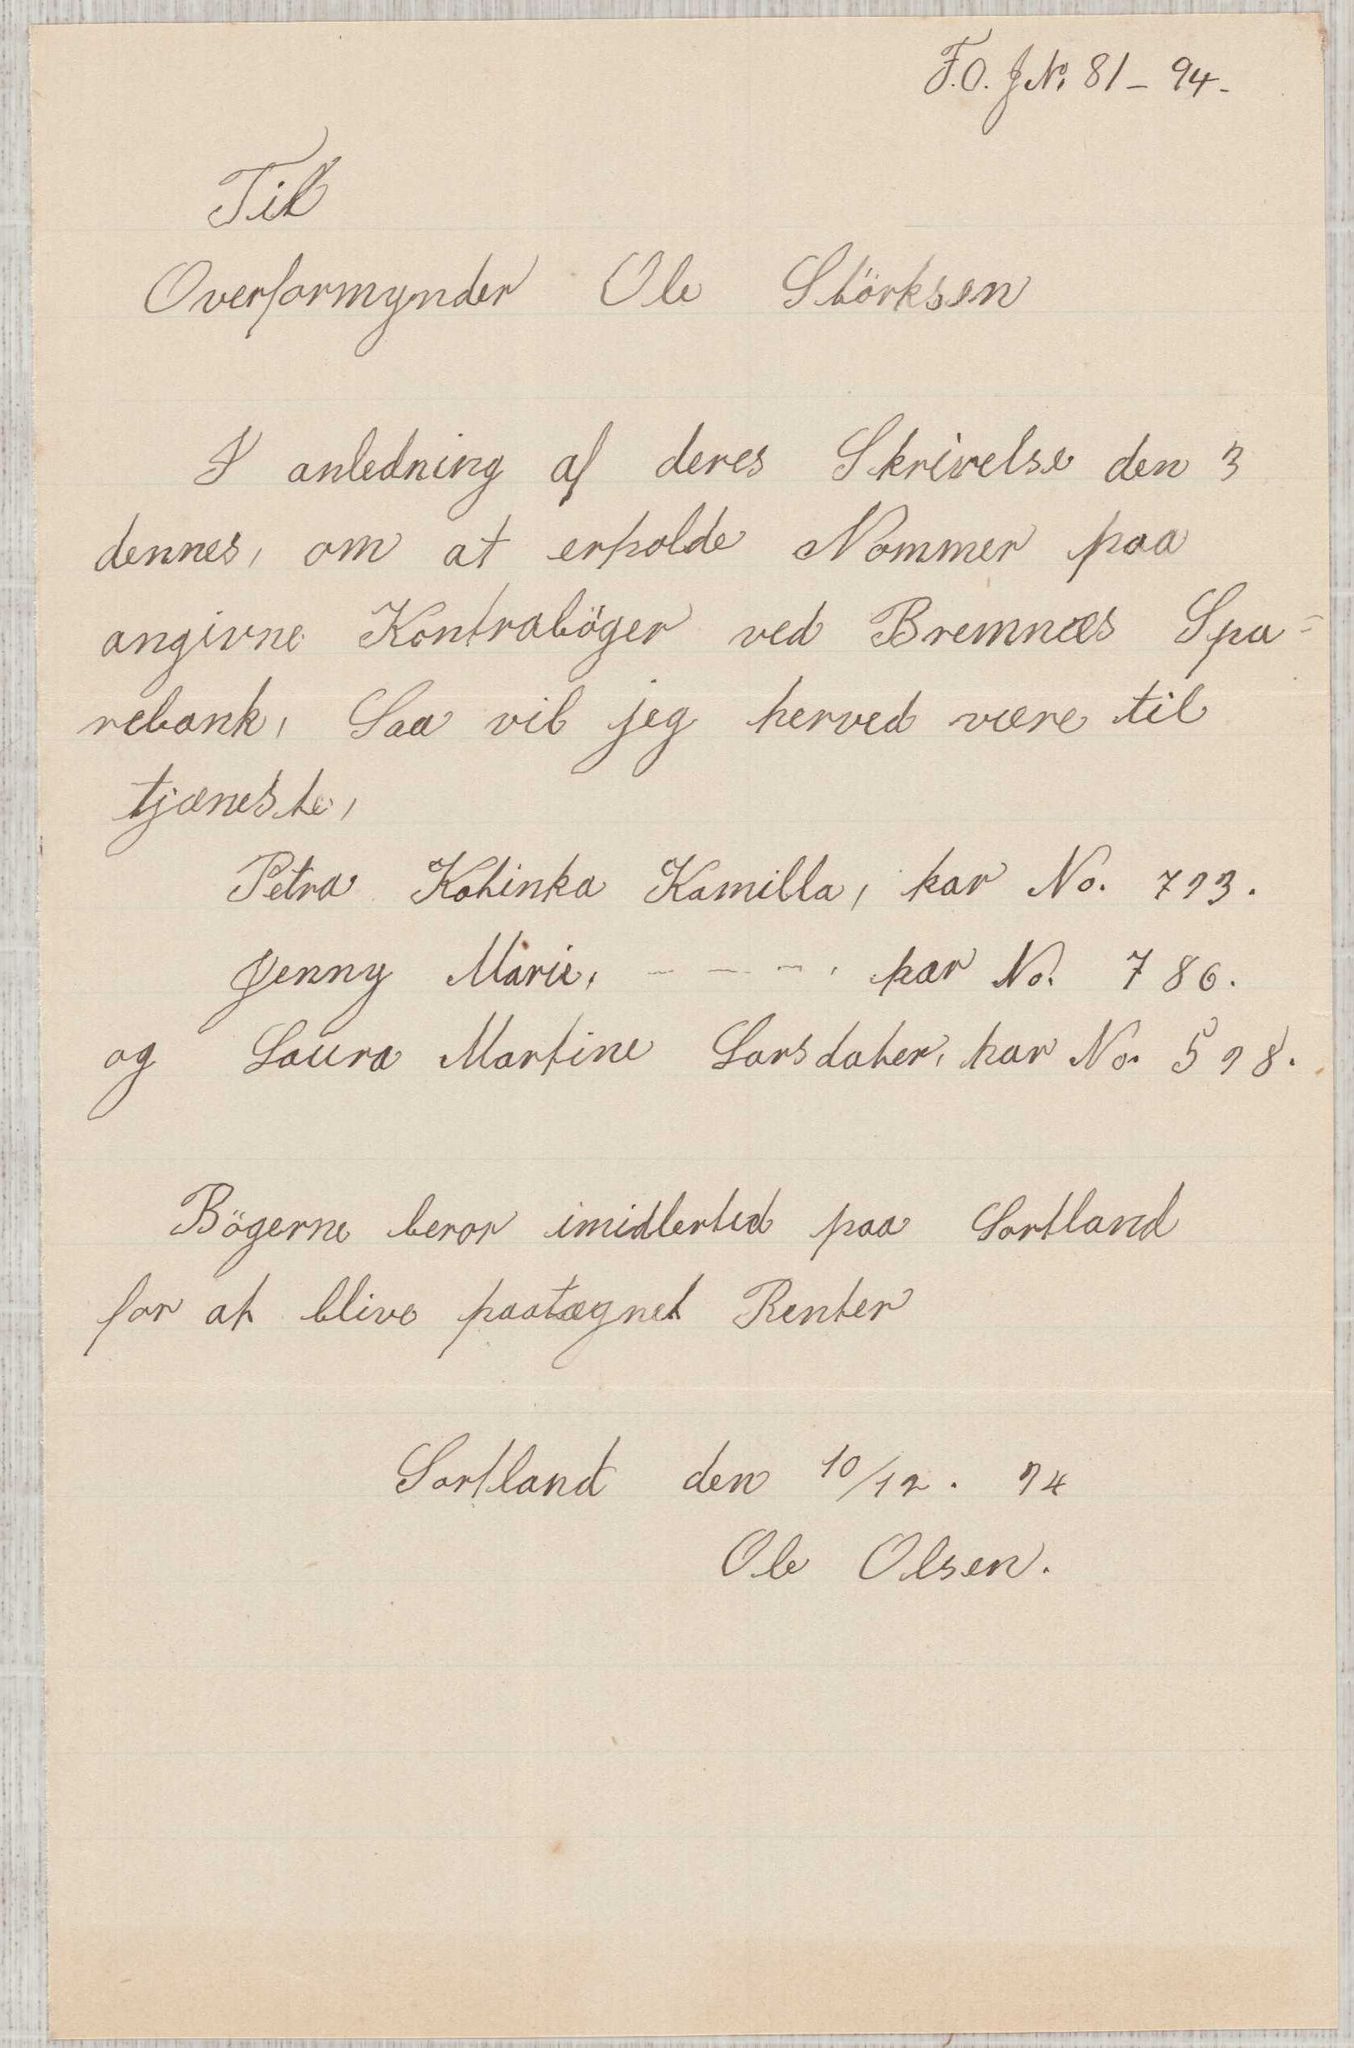 F.O. J No 81 - 94.
Til
Overformynder Ole Störksen
I anledning af deres Skrivelse den 3
dennes, om at erholde Nommer paa
angivne Kontraböger ved Bremnæs Spa-
rebank, Saa vil jeg herved være til
tjæneste,
Petra Katinka Kamilla, har No. 793.
Jenny Marie, - - - - har No. 786.
og Laura Martine Larsdater, har No. 598.
Bögerne beror imidlertid paa Sortland
for at blive paategnet Renter
Sortland den 10/12. 94
Ole Olsen.